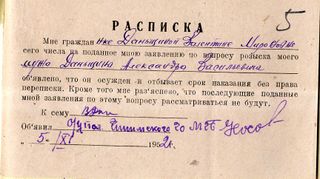 5
РАСПИСКА
Мне граждан ке Даньщиной Валентине Мироновне
сего числа на поданное мною заявление по вопросу розыска моего
мужа Даньщина Александра Васильевича
объявлено, что он осужден и отбывает срок наказания без права
переписки. Кроме того мне раз'яснено, что последующие поданные
мной заявления по этому вопросу рассматриваться не будут.
К сему
Объявил Читинского го МГБ Носов
„5" XI 1952г.